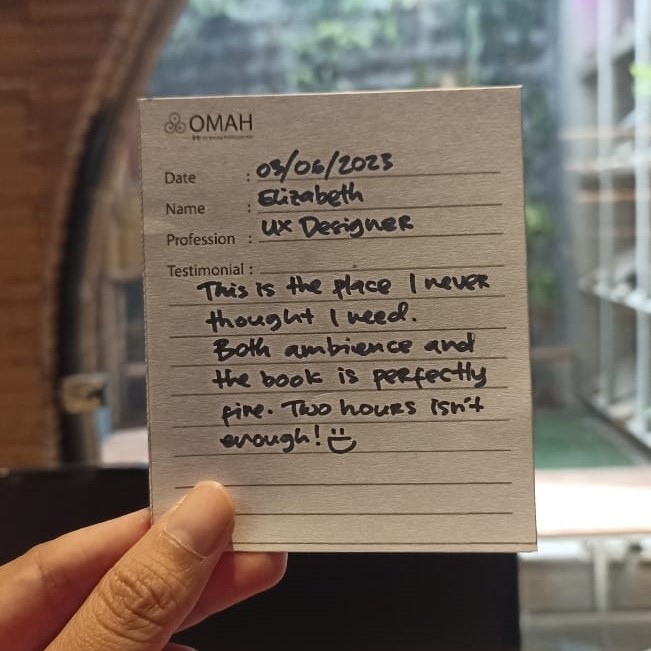 OMAH
Date : 03/06/2023
Name : Elizabeth
Profession : UX Designer
Testimonial :
This is the place I never
thought I need.
Both ambience and
the book is perfectly
fine. Two hours isn't
enough!